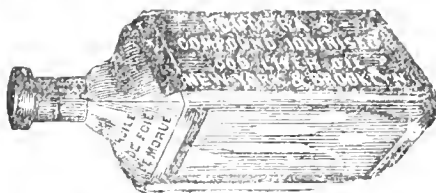 COMPOUND IODINISED
COD LIVER OIL
NEW-YORK & BROOKLYN
HUILE
DE FOIE
DE MORUE